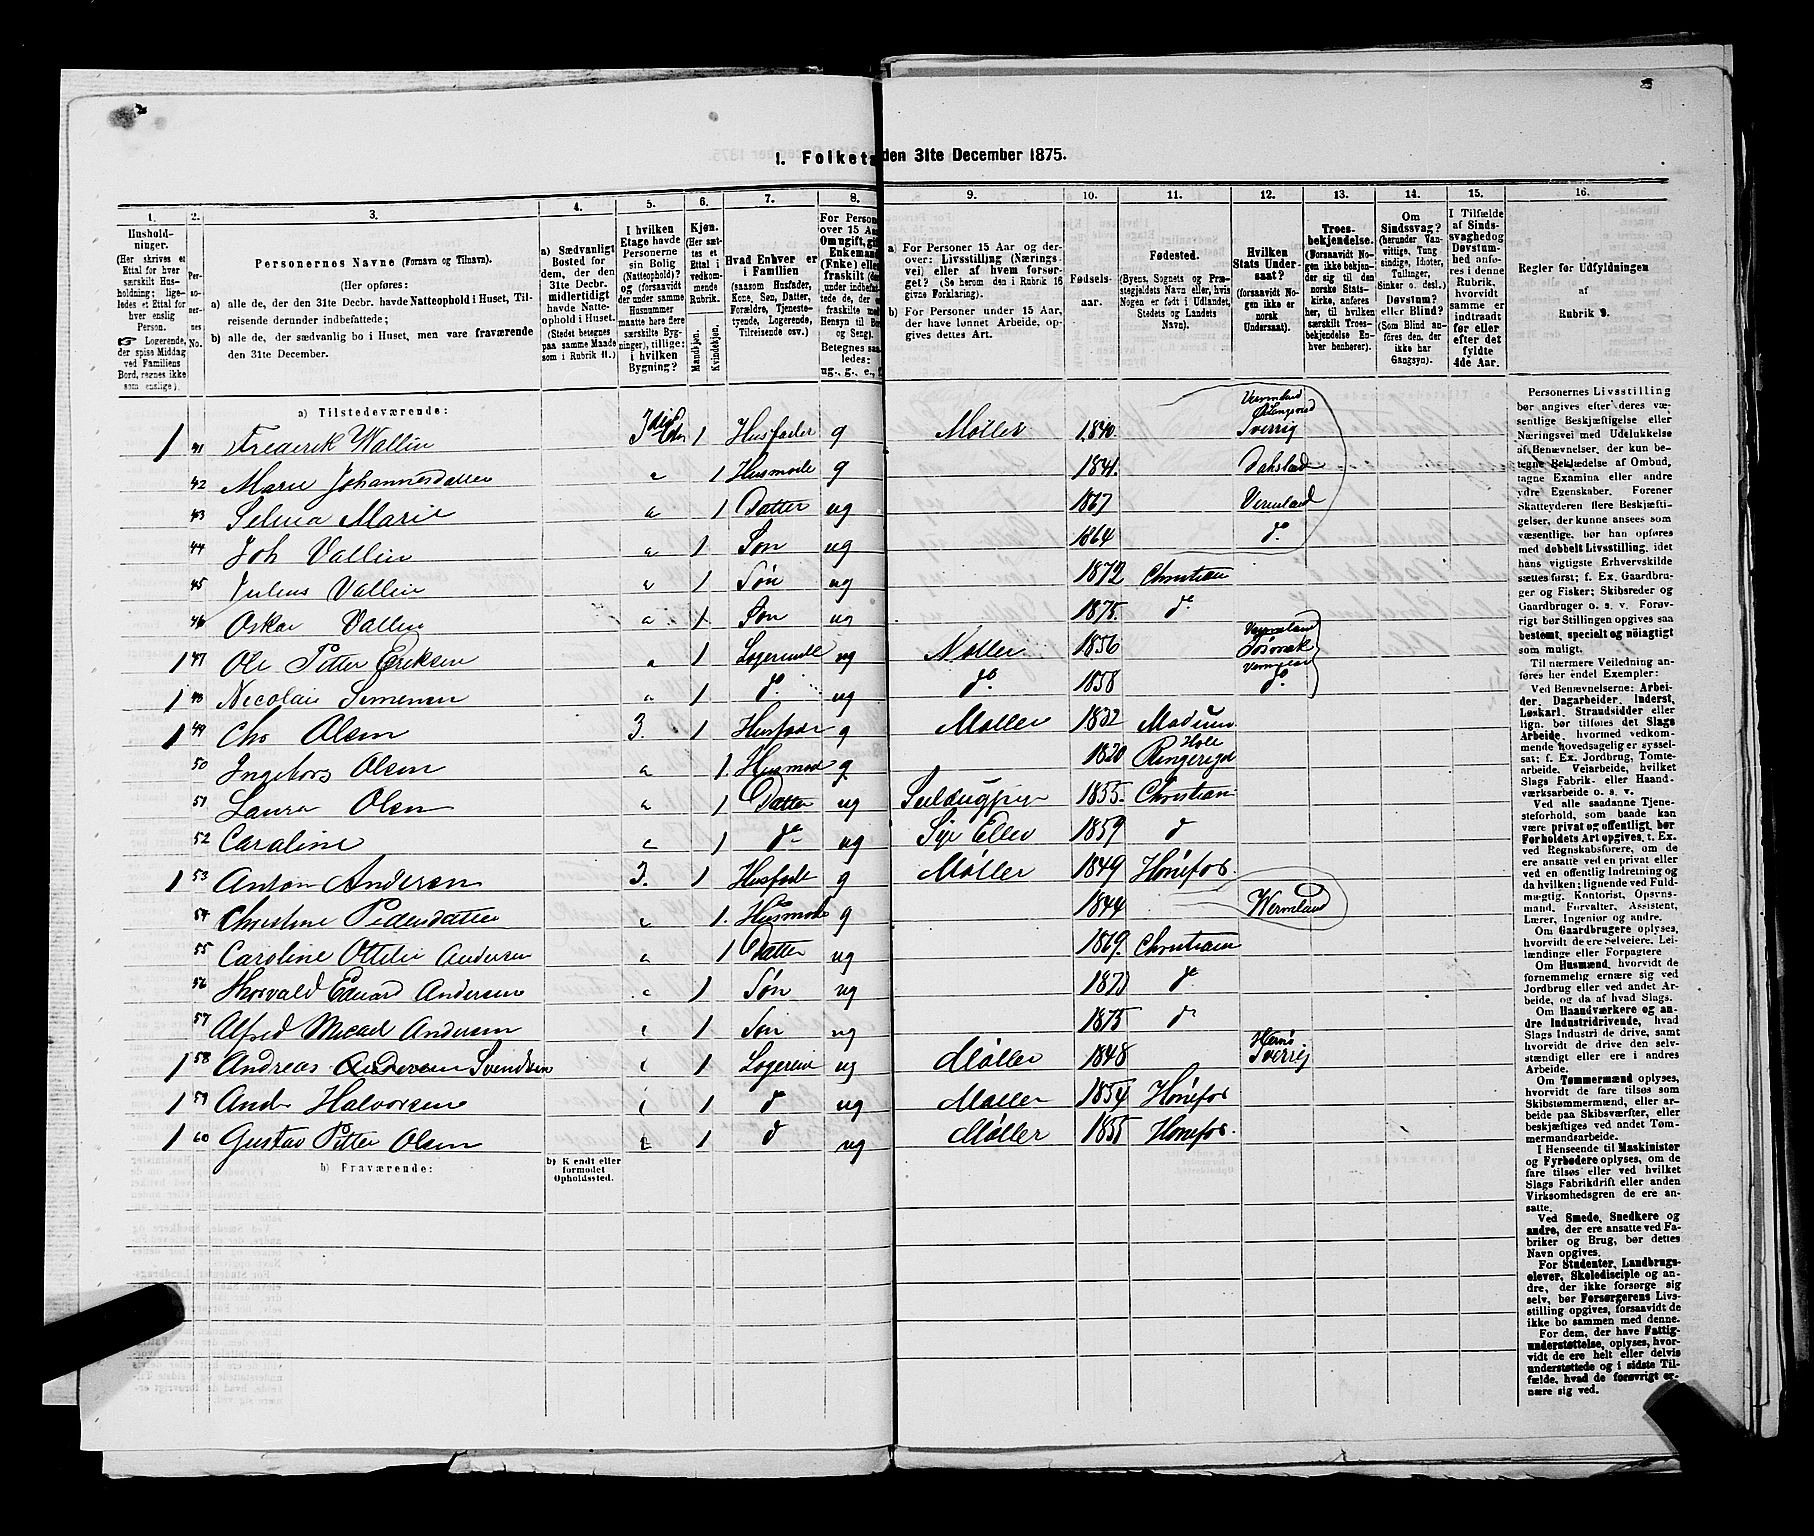 1. Folketa den 31te December 1875.
1. 2. 3. 4. 5. 6. 7. 8. 9. 10. 11. 12. 13. 14. 15. 16.
Hushold-
ninger.
(Her skrives et
Ettal for hver
særskilt Hus-
holdning; lige-
ledes et Ettal for
hver enslig
Person.
☞ Logerende,
der spise Middag
ved Familiens
Bord, regnes ikke
som enslige).
Per-
so-
ner-
nes
No.
Personernes Navne (Fornavn og Tilnavn).
(Her opføres:
a) alle de, der den 31te Decbr. havde Natteophold i Huset, Til-
reisende derunder indbefattede;
b) alle de, der sædvanlig bo i Huset, men vare fraværende
den 31te December.
a) Sædvanligt
Bosted for
dem, der den
31te Decbr.
midlertidigt
havde Natte-
ophold i Huset.
(Stedet betegnes
paa samme Maade
som i Rubrik 11.)
I hvilken
Etage havde
Personerne
sin Bolig
(Natteophold)?
og (forsaavidt
der under samme
Husnummer
maatte høre flere
særskilte Byg-
ninger), tillige:
i hvilken
Bygning?
Kjøn.
(Her sæt-
tes et
Ettal i
vedkom-
mende
Rubrik.
Mandkjøn.
Kvindekjøn.
Hvad Enhver er
i Familien
(saasom Husfader,
Kone, Søn, Datter,
Forældre, Tjeneste-
tyende, Logerende,
Tilreisende osv.)
For Person
over 15 Aar
Om ugift, gift
Enkemand
(Enke) eller
fraskilt (der
under indbefat-
tede de, der
fraskilte med
Hensyn til Bo
og Seng).
Betegnes saa-
ledes:
ug., g., e., f.
a) For Personer 15 Aar og der-
over: Livsstilling (Nærings-
vei) eller af hvem forsør-
get? (Se herom den i Rubrik 16
givne Forklaring).
b) For Personer under 15 Aar,
der have lønnet Arbeide, op-
gives dettes Art.
Fødsels-
aar.
Fødested.
(Byens, Sognets og Præ-
stegjældets Navn eller, hvis
Nogen er født i Udlandet,
Stedets og Landets
Navn).
Hvilken
Stats Under-
saat?
(forsaavidt No-
gen ikke er
norsk
Undersaat).
Troes-
bekjendelse.
(Forsaavidt No-
gen ikke bekjen-
der sig til den
norske Stats-
kirke, anføres
her, til hvilken
særskilt Troes-
bekjendelse En-
hver henhører).
Om
Sindssvag?
(herunder Van-
vittige, Tung-
sindige, Idioter,
Tullinger,
Sinker o. desl.)
Døvstum?
eller Blind?
(Som Blind an-
føres den, der
ikke har
Gangsyn).
I Tilfælde
af Sinds-
svaghed og
Døvstum-
hed anfø-
res i denne
Rubrik,
hvorvidt
samme er
indtraadt
før eller
efter det
fyldte
4de Aar.
Regler for Udfyldningen
af
Rubrik 9.
a) Tilstedeværende:
1 41 Frederik Wallin 1 Husfader g Møller 1840 Sverrig
42 Marie Johannesdatter 1 Husmode g 1841. Dahsland
43 Selma Marie 1 Datter ug 1867 Vermland
44 Joh Vallin 1 Søn ug 1864 do
45 Julius Vallin 1 Søn ug 1872 Christian
46 Oskar Vallin 1 Søn ug 1875. do
1 47 Ole Petter Eriksen 1 Logerende ug Møller 1856 Vermland
1 48 Nicolai Simensen 1 do ug do 1858 do
1 49 Chr Olsen 3. 1 Husfader g Møller 1832 Modum
50 Ingeborg Olsen 1 Husmod g 1820 Hole Ringerige
51 Laura Olsen 1 Datter ug 1855. Christian
52 Caroline 1 do ug 1859 d
1 53 Anton Andersen 3. 1 Husfade g Møller 1849 Hønefos
54 Christine Pedersdatter 1 Husmode g 1844 Wermland
55 Caroline Otilie Andersen 1 Datter ug 1869. Christian
56 Thorvald Eduard Andersen 1 Søn ug do
57 Alfred Micael Andersen 1 Søn ug 1875 do
1 58 Andreas Svendsen 1 Logeren ug Møller 1848 Sverrig
1 59 Andr Halvorsen 1 d ug Møller 1854 Hønefos
1 60 Gustav Petter Olsen 1 d ug Møller 1855 Hønefos.
b) Fraværende:
b) Kjendt eller
formodet
Opholdssted.
Personernes Livsstilling
bør angives efter deres væ-
sentlige Beskjæftigelse eller
Næringsvei med Udelukkelse
af Benævnelser, der kun be-
tegne Beklædelse af Ombud,
tagne Examina eller andre
ydre Egenskaber. Forener
Skatteyderen flere Beskjæfti-
gelser, der kunne ansees som
væsentlige, bør han opføres
med dobbelt Livsstilling, idet
hans vigtigste Erhvervskilde
sættes først; f. Ex. Gaardbru-
ger og Fisker; Skibsreder og
Gaardbruger o. s. v. Forøv-
rigt bør Stillingen opgives saa
bestemt, specielt og nöiagtigt
som muligt.
Til nærmere Veiledning an-
føres her endel Exempler:
Ved Benævnelserne: Arbei-
der, Dagarbeider, Inderst,
Løskarl, Strandsidder eller
lign. bør tilføies det Slags
Arbeide, hvormed vedkom-
mende hovedsagelig er syssel-
sat; f. Ex. Jordbrug, Tomte-
arbeide, Veiarbeide, hvilket
Slags Fabrik- eller Haand-
værksarbeide o. s. v.
Ved alle saadanne Tjene-
steforhold, som baade kan
være privat og offentligt, bør
Forholdets Art opgives, t. Ex.
ved Regnskabsførere, om de
ere ansatte ved en privat eller
ved en offentlig Indretning og
da hvilken; lignende ved Fuld-
mægtig, Kontorist, Opsyns-
mand, Forvalter, Assistent,
Lærer, Ingeniør og andre.
Om Gaardbrugere oplyses,
hvorvidt de ere Selveiere, Lei-
lændinge eller Forpagtere
Om Husmænd, hvorvidt de
fornemmelig ernære sig ved
Jordbrug eller ved andet Ar-
beide, og da af hvad Slags.
Om Haandværkere og an-
dre Industridrivende, hvad
Slags Industri de drive, samt
hvorvidt de drive den selv-
stændigt eller ere i andres
Arbeide.
Om Tømmermænd oplyses,
hvorvidt de fare tilsøs som
Skibstømmermænd, eller ar-
beide paa Skibsværfter, eller
beskjæftiges ved andet Tøm-
mermandsarbeide.
I Henseende til Maskinister
og Fyrbødere oplyses, om de
fare tilsøs eller ved hvilket
Slags Fabrikdrift eller anden
Virksomhedsgren de ere an-
satte.
Ved Smede, Snedkere og
andre, der ere ansatte ved Fa-
briker og Brug, bør dettes
Navn opgives.
For Studenter, Landbrugs-
elever, Skoledisciple og an-
dre, der ikke forsørge sig
selv, bør Forsørgerens Livs-
stilling opgives, forsaavidt de
ikke bo sammen med denne.
For dem, der have Fattig-
understøttelse, oplyses, hvor-
vidt de ere helt eller delvis
understøttede og i sidste Til-
fælde, hvad de forøvrigt er-
nære sig ved.